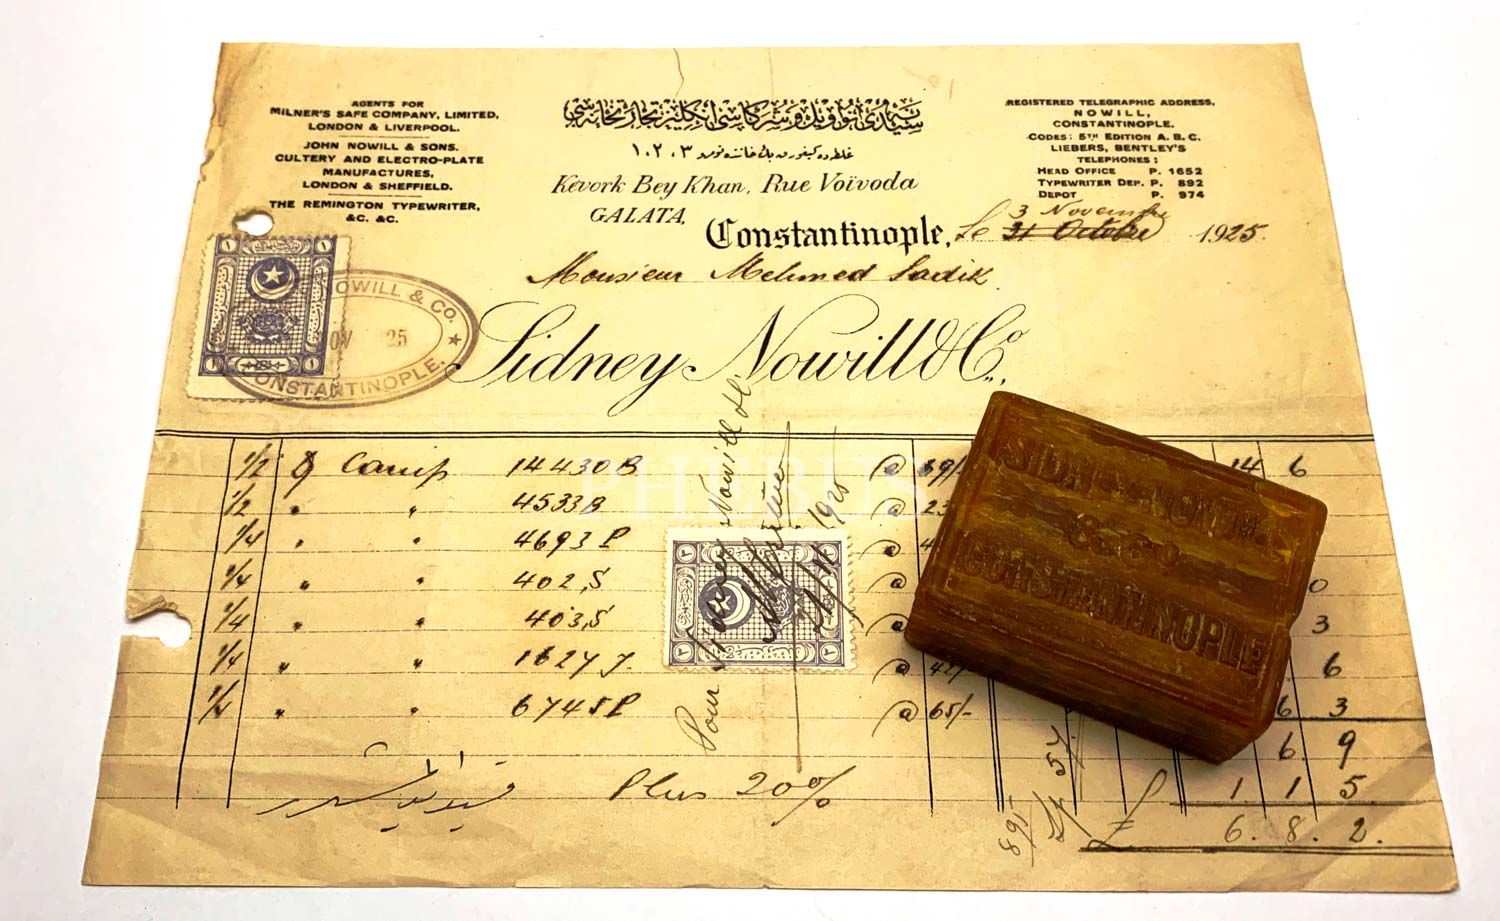 AGENTS FOR
MILNER'S SAFE COMPANY, LIMITED,
LONDON & LIVERPOOL.
JOHN NOWILL & SONS.
CULTERY AND ELECTRO-PLATE
MANUFACTURES,
LONDON & SHEFFIELD.
THE REMINGTON TYPEWRITER,
&C. &C.
سیدنی نوویل و شركاسی انكلیز تجارتخانه‌سی
غلطه‌ده كیفورق بك خاننده نومرو ١٠٢٠٣
Kevork Bey Khan, Rue Voïvoda
GALATA,
REGISTERED TELEGRAPHIC ADDRESS,
NOWILL,
CONSTANTINOPLE.
CODES: 5TH EDITION A. B. C.
LIEBERS, BENTLEY'S
TELEPHONES:
HEAD OFFICE P. 1652
TYPEWRITER DEP. P. 892
DEPOT P. 974
3 Novembre
Constantinople, le 31 Octobre 1925.
Monsieur Mehmed Sadik
Sidney Nowill & Co.,
NOWILL & CO.
NOV 25
CONSTANTINOPLE.
1/2 Camp 14430 B @ 59/- 14 6
1/2 " " 4533 B @ 23
1/4 " " 4693 P @ 4
1/4 " " 402, S @ 0
1/4 " " 403, S @ 3
1/4 " " 1627 J. @ 42/- 6
1/4 " " 6745 P @ 65/- 6 3
6. 9
Plus 20% 1 1 5
£ 6. 8. 2.
Pour Sidney Nowill & Co
1925
PHEBUS
SIDNEY NOWILL
& CO
CONSTANTINOPLE